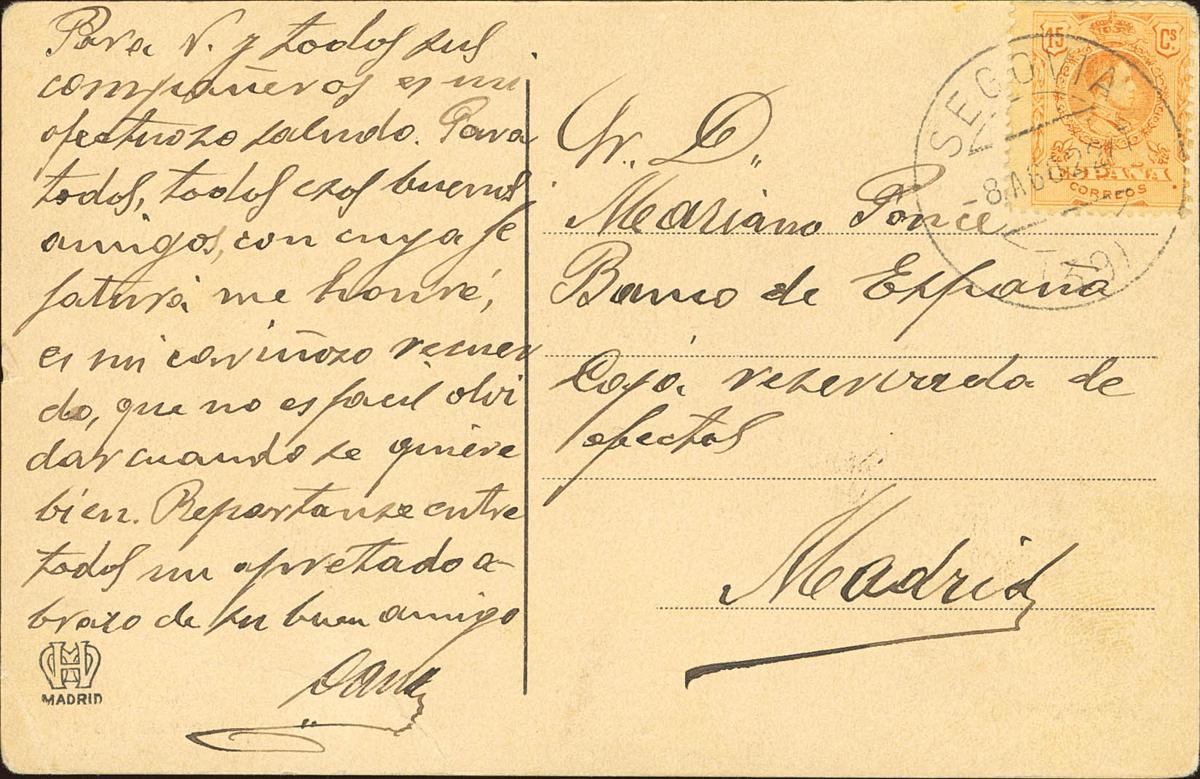 Para V. y todos sus
compañeros es mi
afectuoso saludo. Para
todos, todos esos buenos
amigos, con cuya je
fatura me honré,
es mi cariñoso recuer
do, que no es facil olvi
dar cuando se quiere
bien. Repartanse entre
todos un apretado a-
brazo de su buen amigo
MADRID
Sr. D.
Mariano Ponce
Banco de España
Caja reservada de
efectos
Madrid
15 Cs
ESPAÑA
CORREOS
SEGOVIA